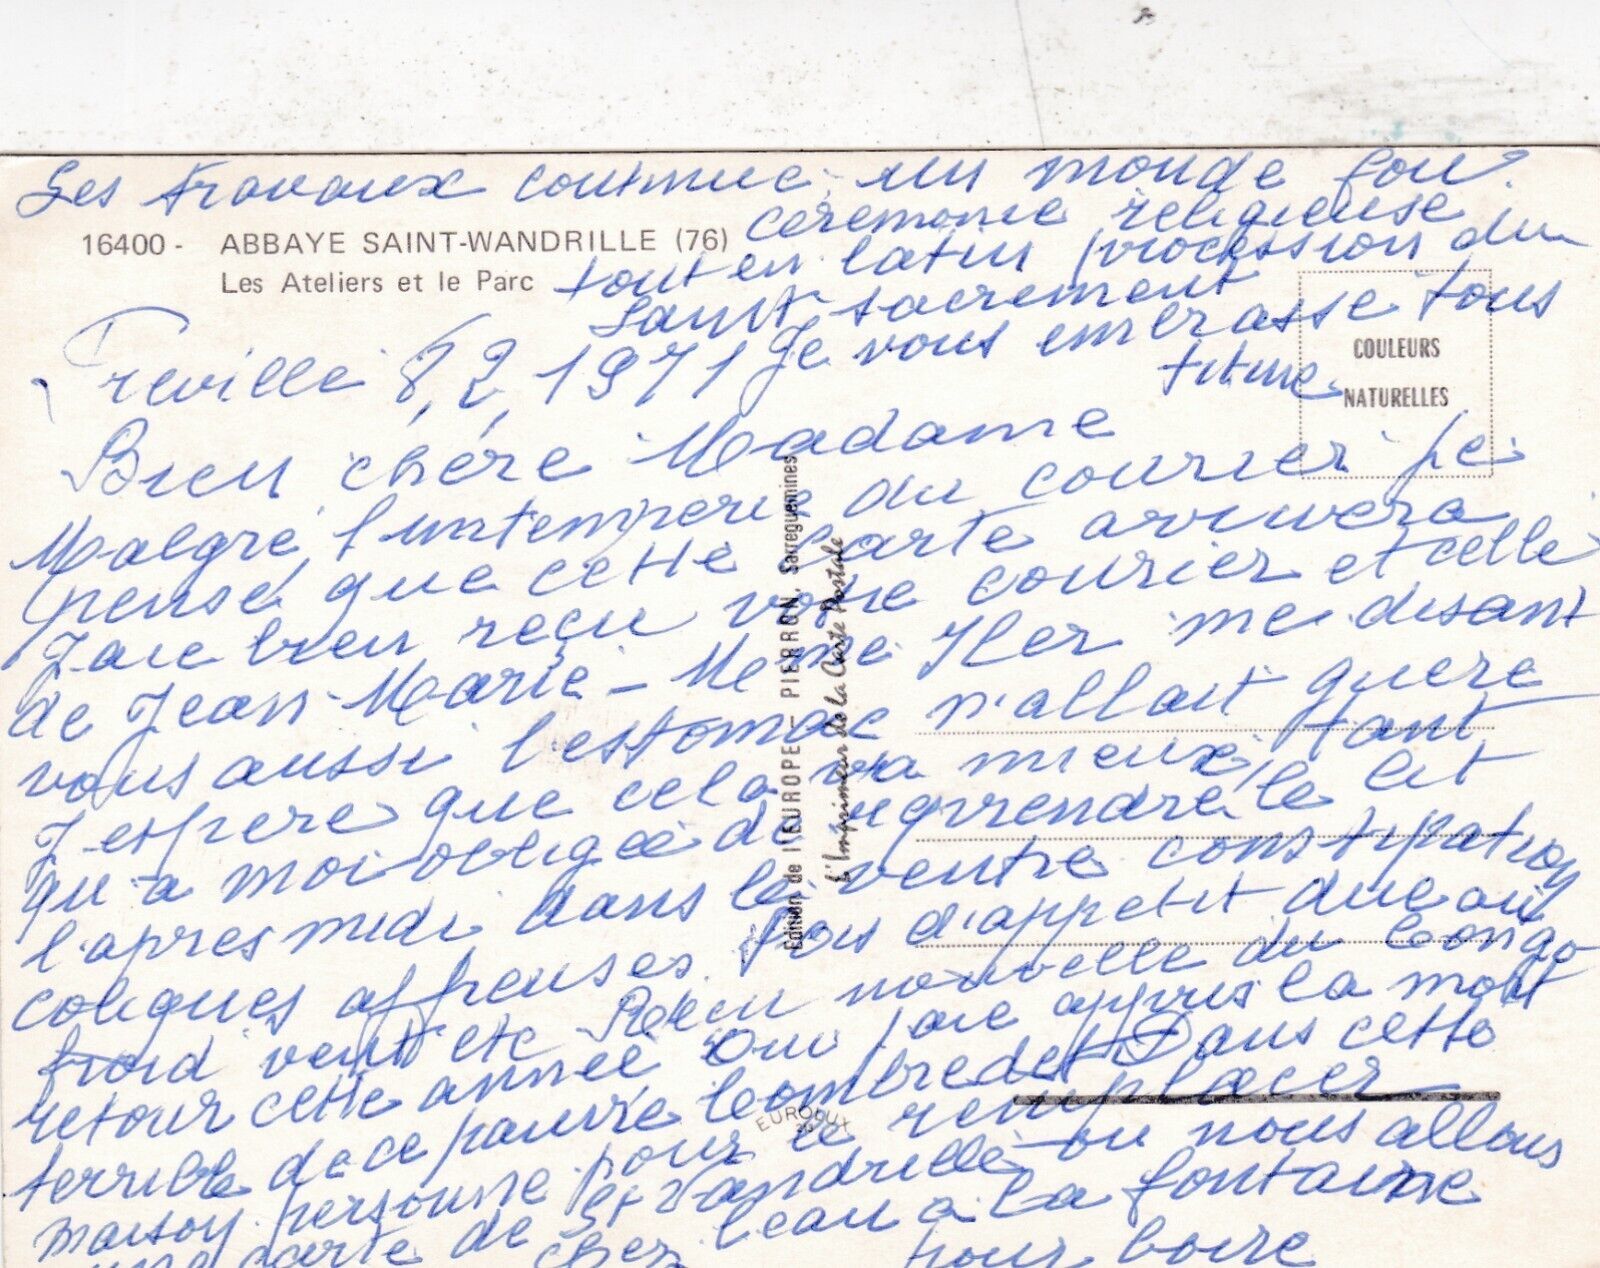 Les travaux continue un monde fou
16400 - ABBAYE SAINT-WANDRILLE (76)
Les Ateliers et le Parc
cérémonie religieuse
tout en latin procession du
Saint sacrement
Je vous embrasse tous
titine
COULEURS
NATURELLES
Freville 8, 2, 1971
Bien chère Madame
Malgré l'intemperie du courrier je
pense que cette carte arrivera
J'aie bien reçu votre courier et celle
de Jean-Marie - Meme Hier me disant
vous aussi l'estomac n'allait guere
J espere que cela va mieux, tant
qu'a moi obligée de reprendre le lit
l'apres midi dans le ventre constipation
coliques affreuses. Pas d'appetit due au
froid vent etc Recu nouvelle du Congo
retour cette année Oui j'aie appris la mort
terrible de ce pauvre Combredet Dans cette
maison personne pour le remplacer
une carte de St Wandrille ou nous allons
cher l'eau a la fontaine
pour boire
Edition de l'EUROPE PIERRON, Sarreguemines
L'Imprimeur de la Carte Postale
EUROLUX